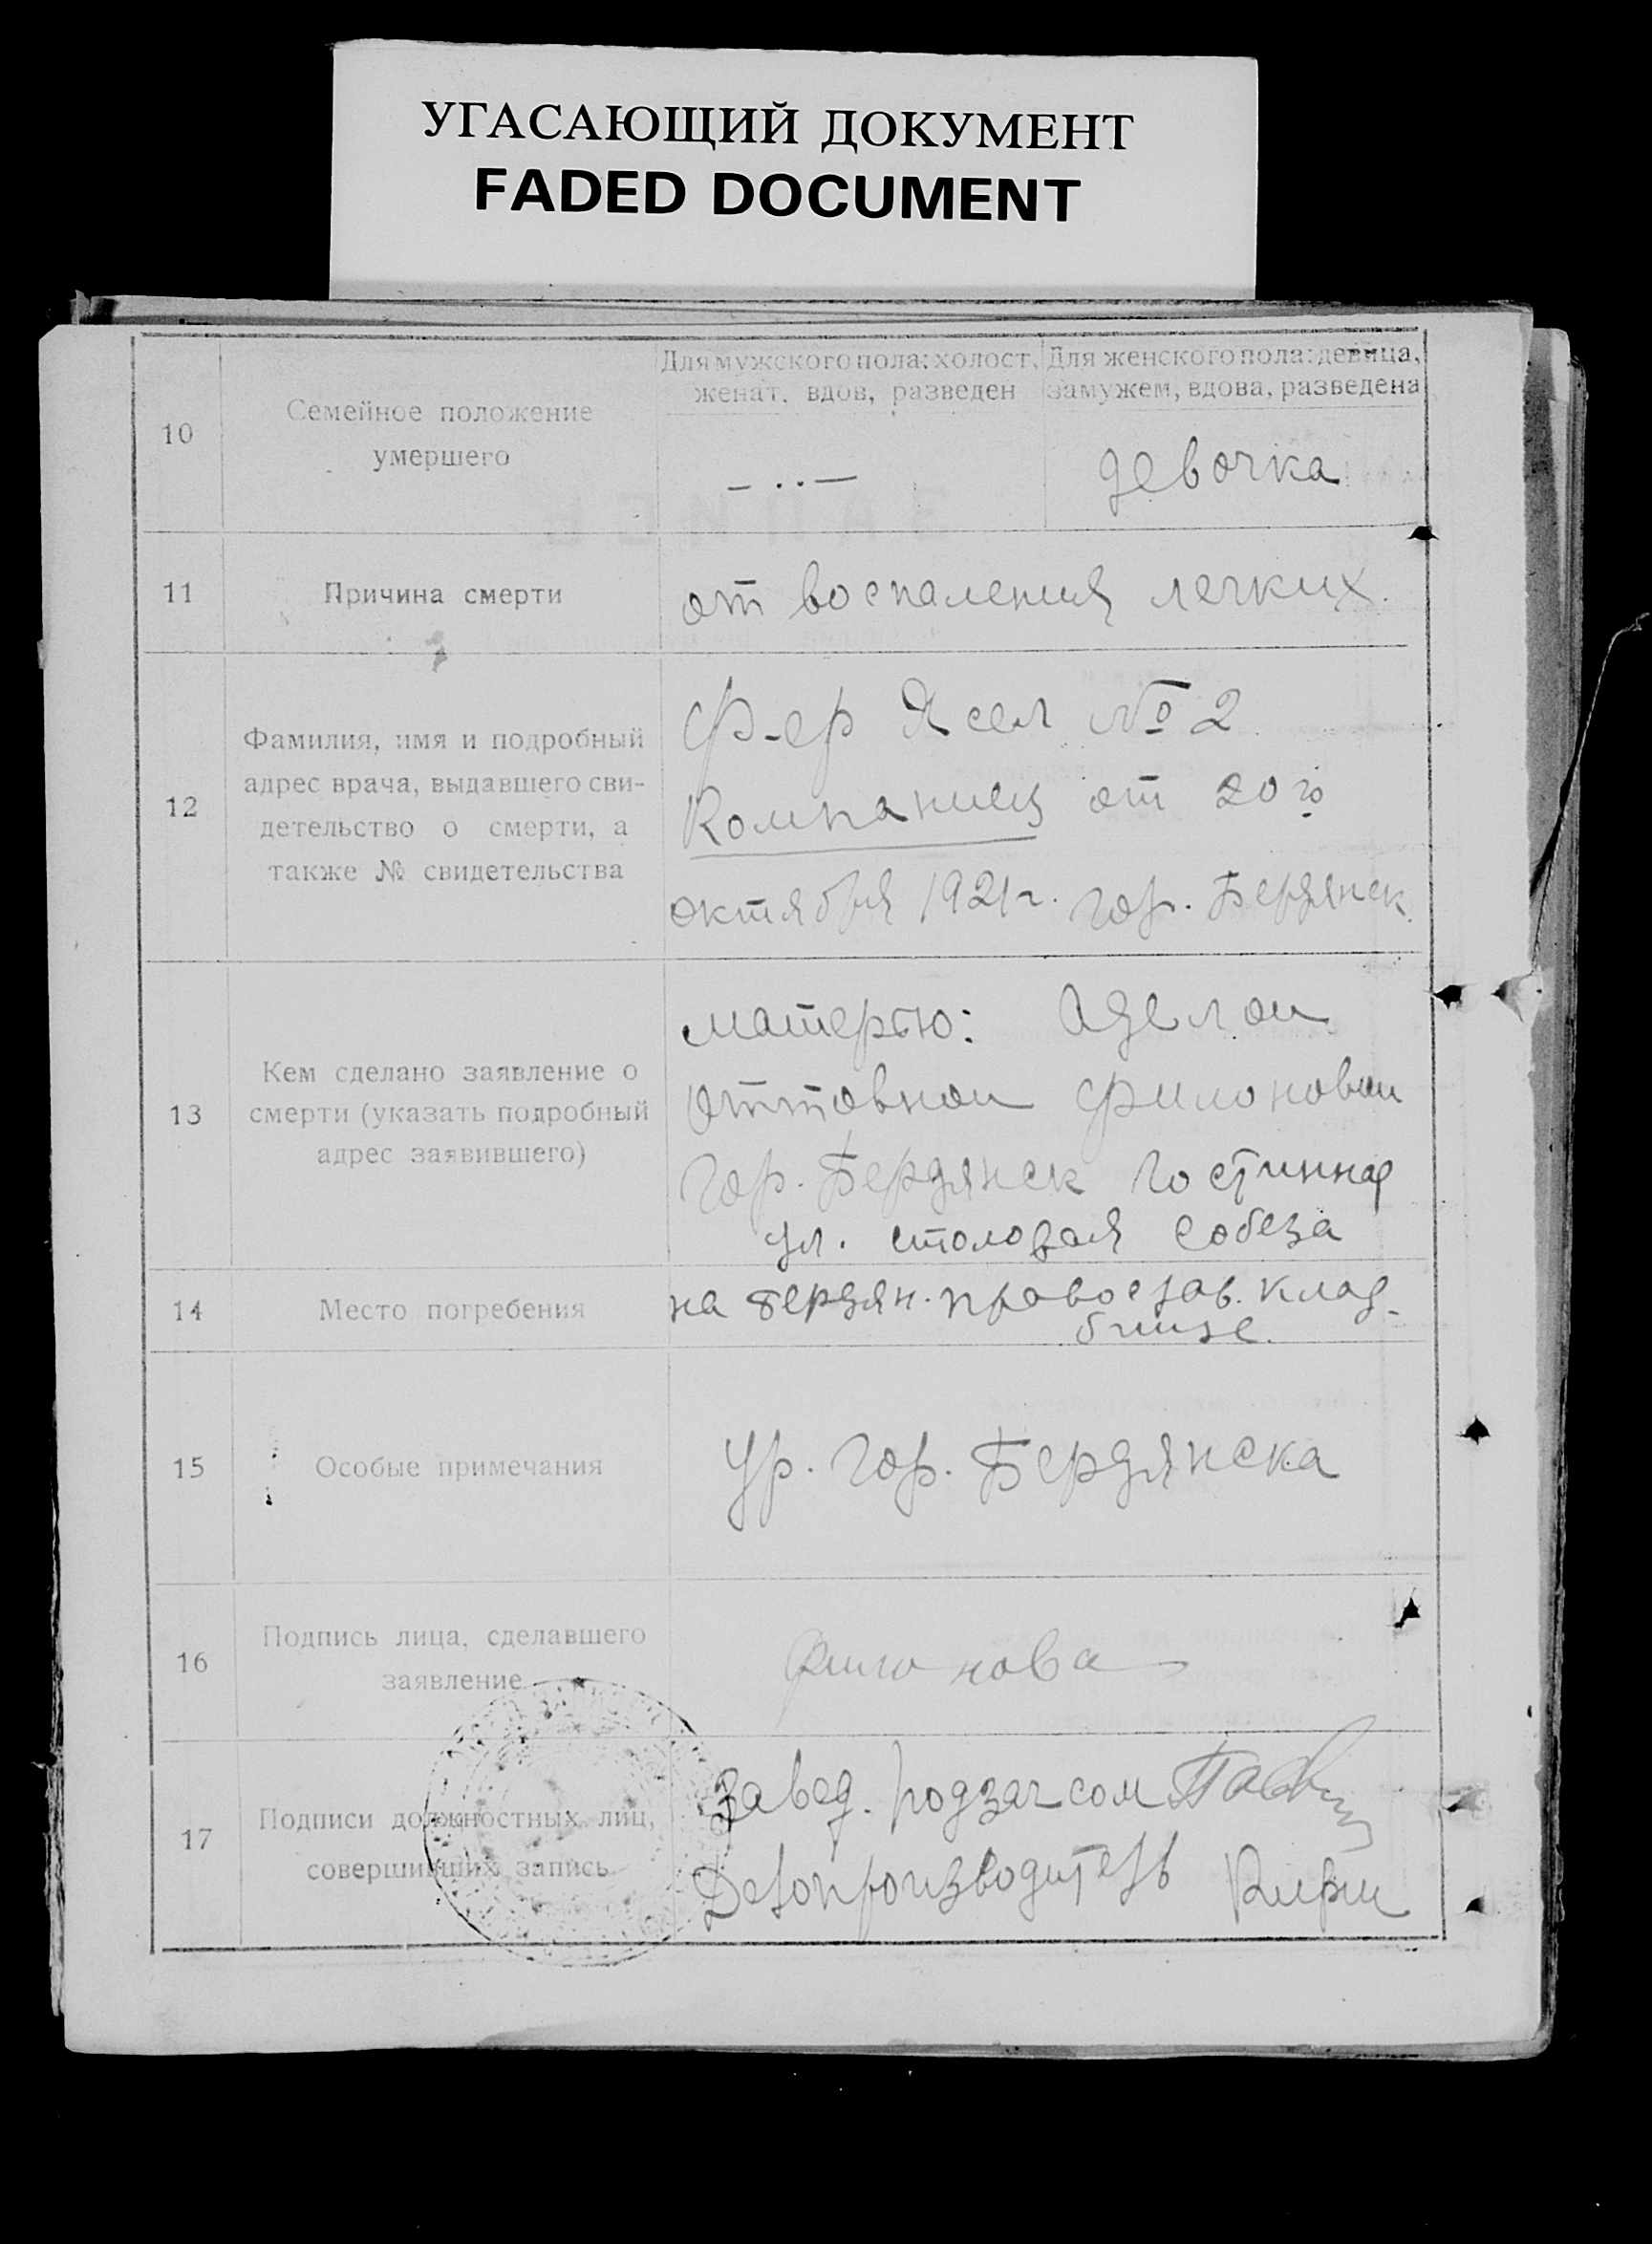 УГАСАЮЩИЙ ДОКУМЕНТ
FADED DOCUMENT
10
Семейное положение
умершего
Для мужского пола: холост,
женат, вдов, разведен
— . . —
Для женского пола: девица,
замужем, вдова, разведена
девочка
11
Причина смерти
от воспаления легких.
12
Фамилия, имя и подробный
адрес врача, выдавшего сви-
детельство о смерти, а
также № свидетельства
Ф-ер Ясел № 2
Компаниец от 20 го
октября 1921 г. гор. Бердянск.
13
Кем сделано заявление о
смерти (указать подробный
адрес заявившего)
матерью: Аделой
Оттовной Филоновой
гор. Бердянск Гостинная
ул. столовая Собеза
14
Место погребения
на Бердян. православ. клад-
бище.
15
Особые примечания
Ур. гор. Бердянска
16
Подпись лица, сделавшего
заявление
Филонова
17
Подписи должностных лиц,
совершивших запись
Завед. подзагсом
Делопроизводитель